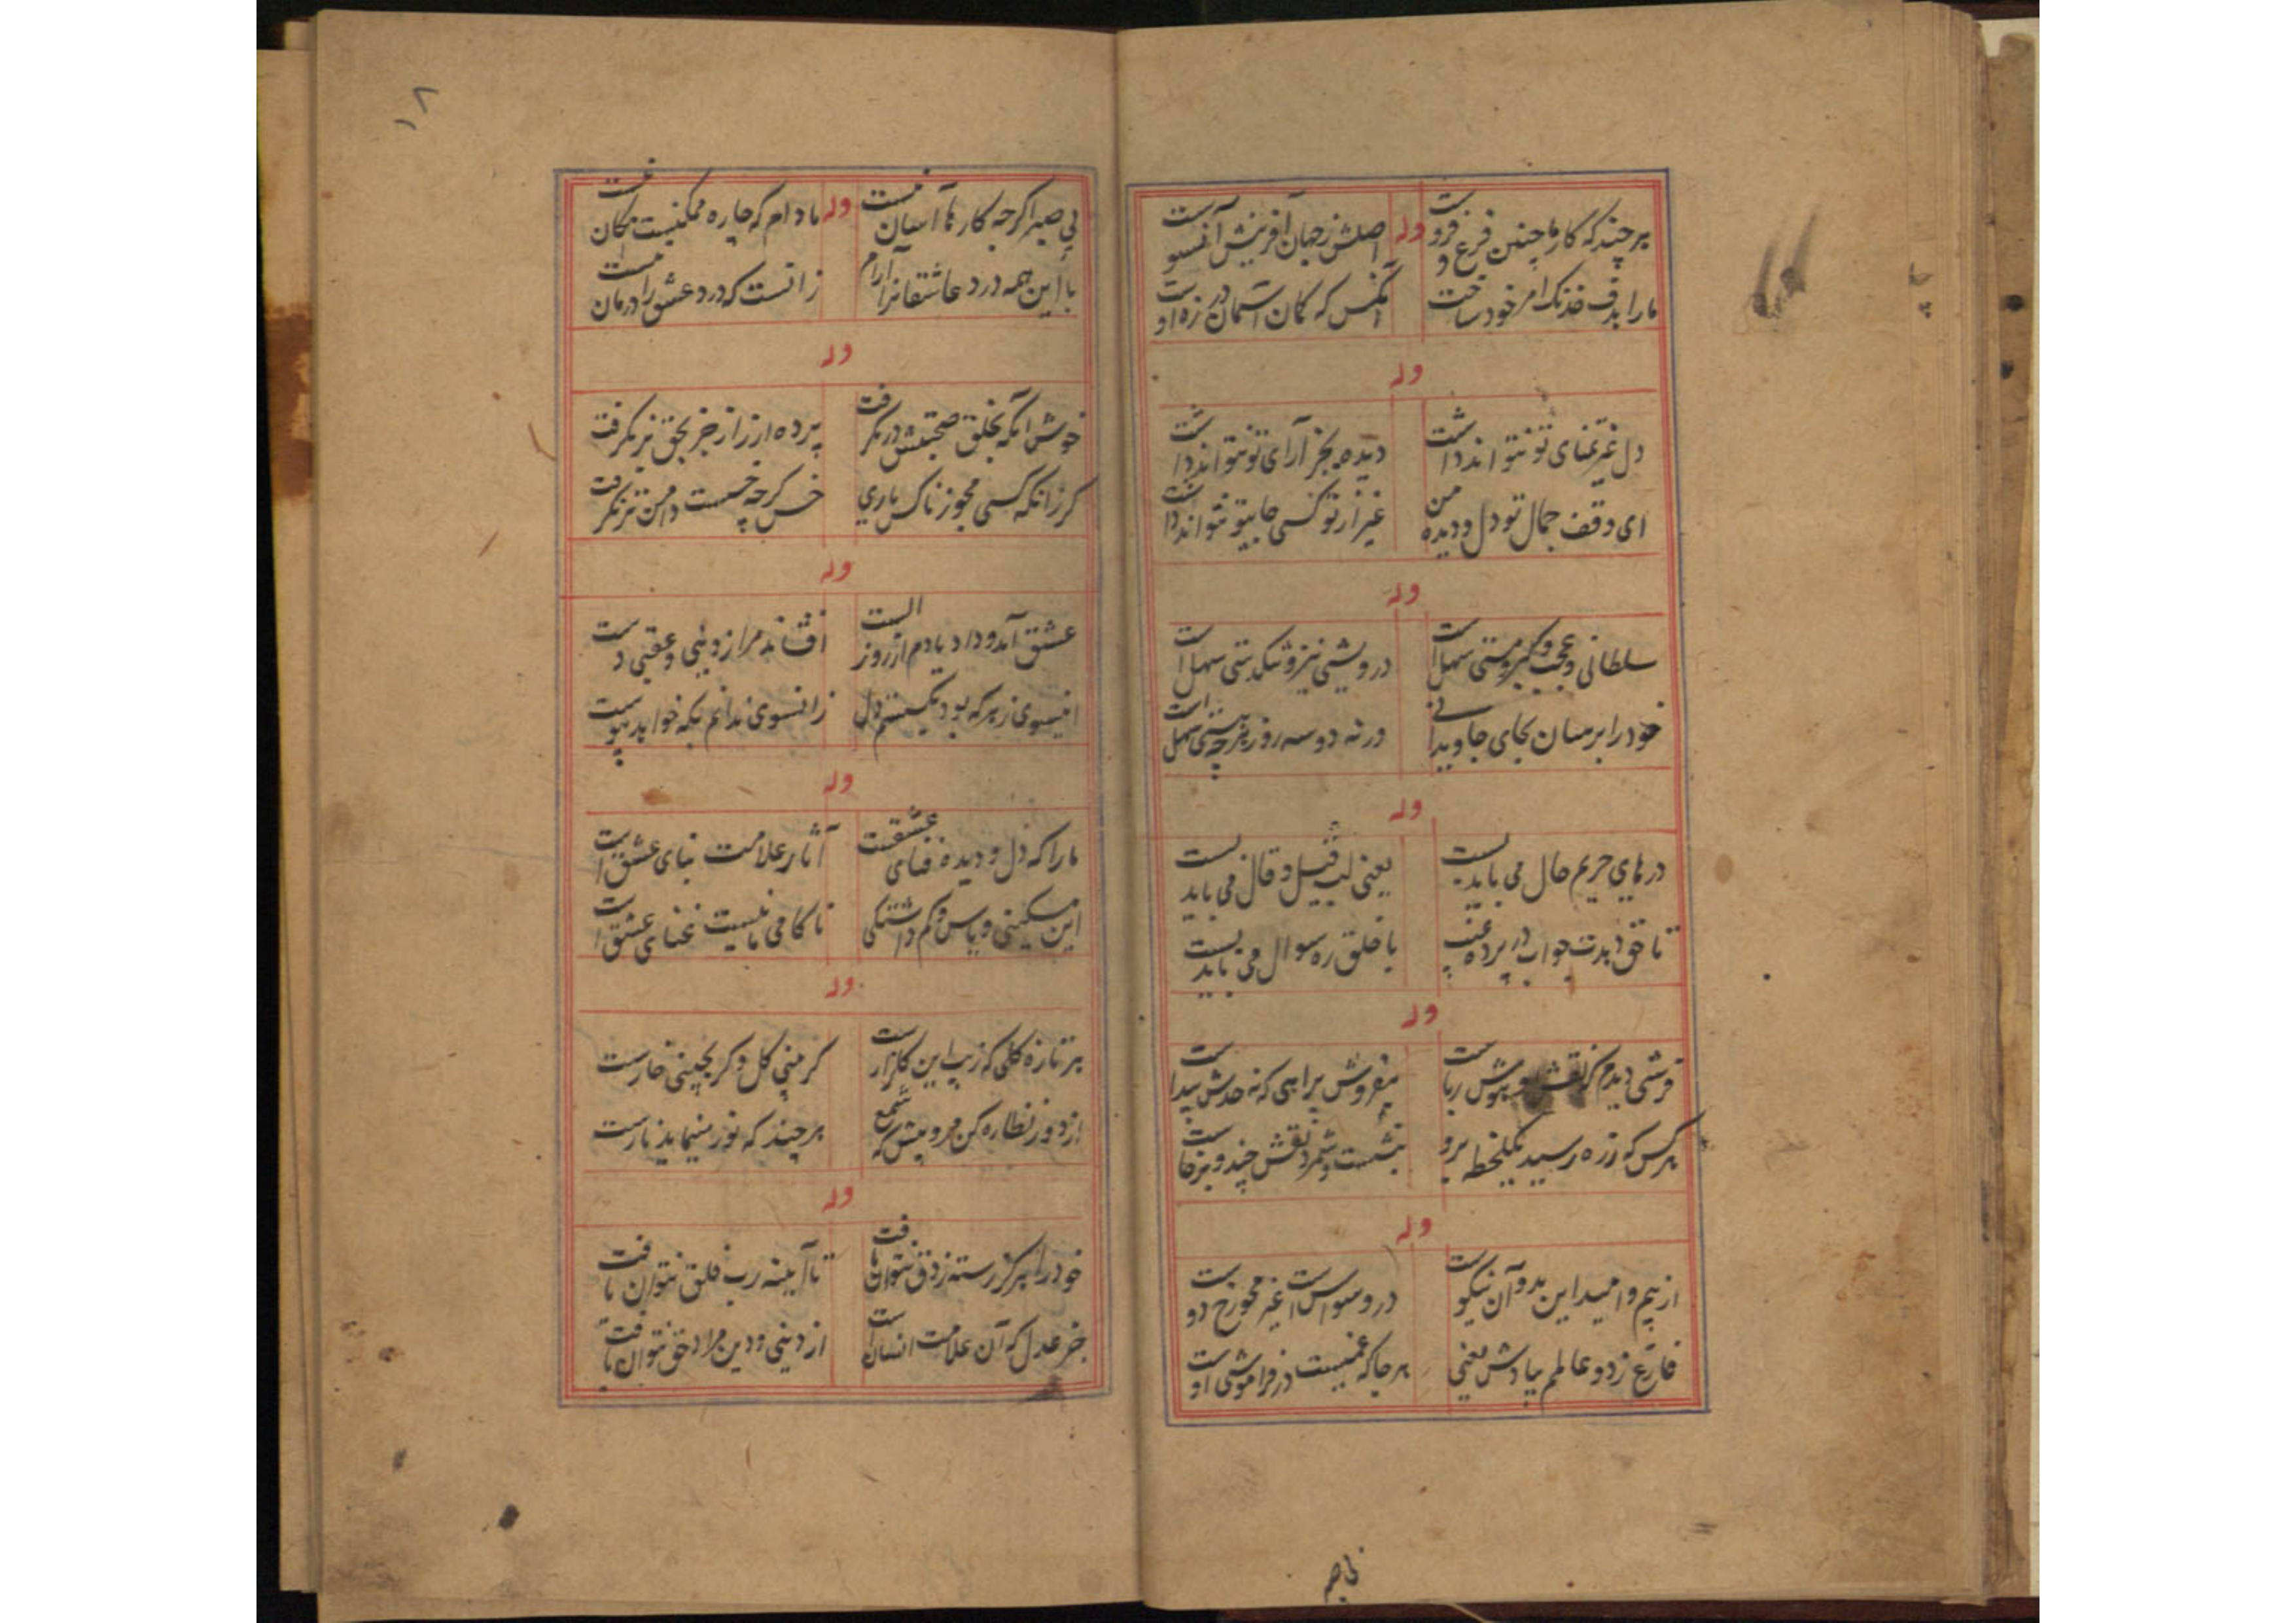 هر چند که کار ما چنین فرع و فروست
وله
اصلش ز جهان آفرینش آنسوست
ما را هدف خدنک امر خود ساخت
آنکس که کمان آسمان در زه اوست
وله
دل غیر تمنای تو نتواند داشت
دیده بجز آرای تو نتواند داشت
ای وقف جمال تو دل و دیده من
غیر از تو کسی جایتو نتواند داشت
وله
سلطانی و عجب و کبر و مستی سهل است
درویشی نیز و تنکدستی سهل است
خود را برسان بجای جاویدانی
ورنه دو سه روز هر چه هستی سهل است
وله
درهای حریم حال می باید بست
یعنی لب قیل و قال می باید بست
تا حق دهدت جواب در پرده غیب
با خلق ره سوال می باید بست
وله
فرشی دیدم که نقش هوش رباست
مفروش براهی که نه حدش پیداست
هر کس که ز ره رسید یکلحظه برو
بنشست و شمرد نقش چند و برخاست
وله
از بیم و امید این بد و آن نیکوست
در وسواس است غیر محو رخ دوست
فارغ ز دو عالم بیادش یعنی
هر جا که غمیست در فراموشی اوست
بی صبر
۱۸
بی صبر اگر چه کارها آسان نیست
وله
مادام که چاره ممکنیست نکان نیست
با این همه درد عاشقانرا آرام
زانست که درد عشق را درمان نیست
وله
خوش آنکه بخلق صحبتش در نکرفت
پرده از راز جز بحق بر نکرفت
کرزانکه کسی مجوز ناکس یاری
خس کرچه خسست دامن تر نکرفت
وله
عشق آمد و داد یادم از روز الست
افشاند مرا ز دینی و عقبی دست
اینسوی ز هر که بود بکسستم دل
زانسوی ندانم بکه خواهد پیوست
وله
ما را که دل و دیده فنای عشقست
آثار علامت بنای عشق است
این مسکینی و یاس و کم داشتکی
ناکامی ما نیست غنای عشق است
وله
هر تازه کلی که زیب این کلزار است
کر بینی کل و کر بچینی خارست
از دور نظاره کن مرو پیش که شمع
هر چند که نور مینماید نارست
وله
خود را هرکز رسته ز دق نتوان یافت
تا آیینه رب فلق نتوان یافت
جز عدل که آن علامت انسان است
از دینی و دین مراد حق نتوان یافت